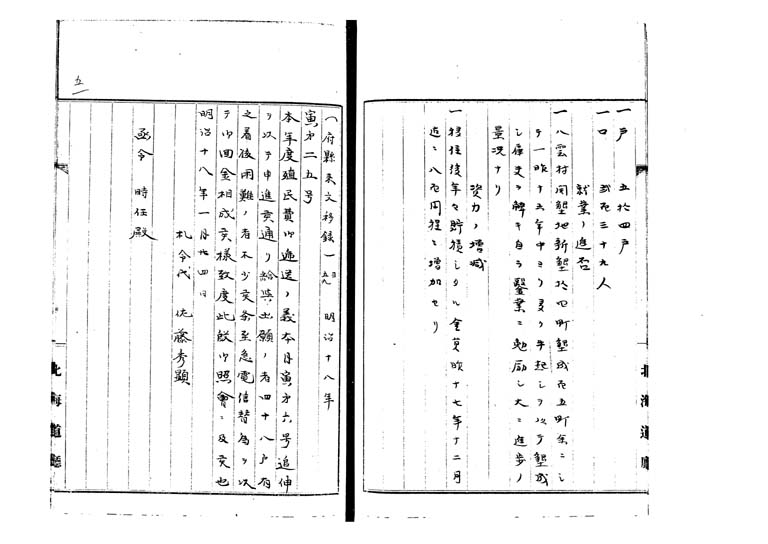 一戸　五拾四戸
一口　弐百三十九人
就業ノ進否
一八雲村開墾地新墾拾四町墾成百五町余ニシ
テ一昨十六年中ヨリ
シ
量況ナリ
資力ノ増減
一移住後年々貯積シタル金員昨十七年十二月
近ニ八百円程ニ増加セリ
北海道廳
（府縣来文移録一　明治十八年
寅第二五号
本年度殖民費御逓送ノ義本月寅第六号追伸
ヲ以テ申進候通リ給與出願ノ者四十八戸有
之着後困難ノ者不少候条至急電信替為ヲ以
テ御回金相成候様致度此段御照會ニ及候也
明治十八年一月廿四日
札令代　佐藤秀顕
函令　時任殿
五
北海道廳